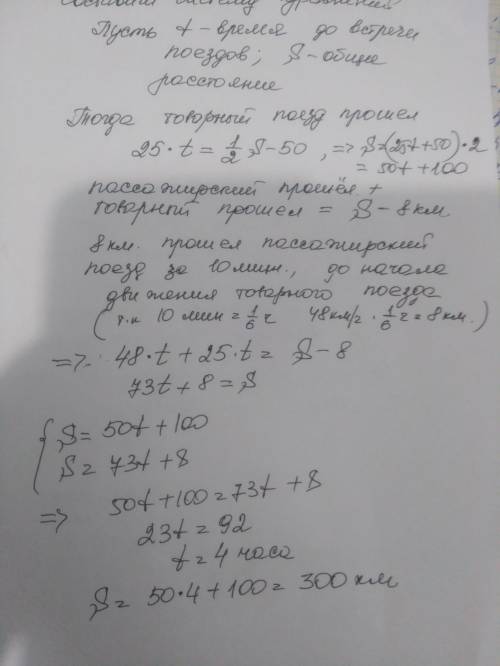 составим систему уравнений
Пусть t - время до встречи
поездов; S - общее
расстояние
Тогда товарный поезд прошел
25·t = 1/2 S - 50, => S = (25t+50)·2
= 50t + 100
пассажирский прошёл +
товарный прошел = S - 8 км
8 км. прошел пассажирский
поезд за 10 мин., до начала
движения товарного поезда
(т.к 10 мин = 1/6 ч 48 км/ч · 1/6 ч = 8 км.)
=> 48·t + 25·t = S - 8
73t + 8 = S
{ S = 50t + 100
S = 73t + 8
=> 50t + 100 = 73t + 8
23t = 92
t = 4 часа
S = 50·4 + 100 = 300 км